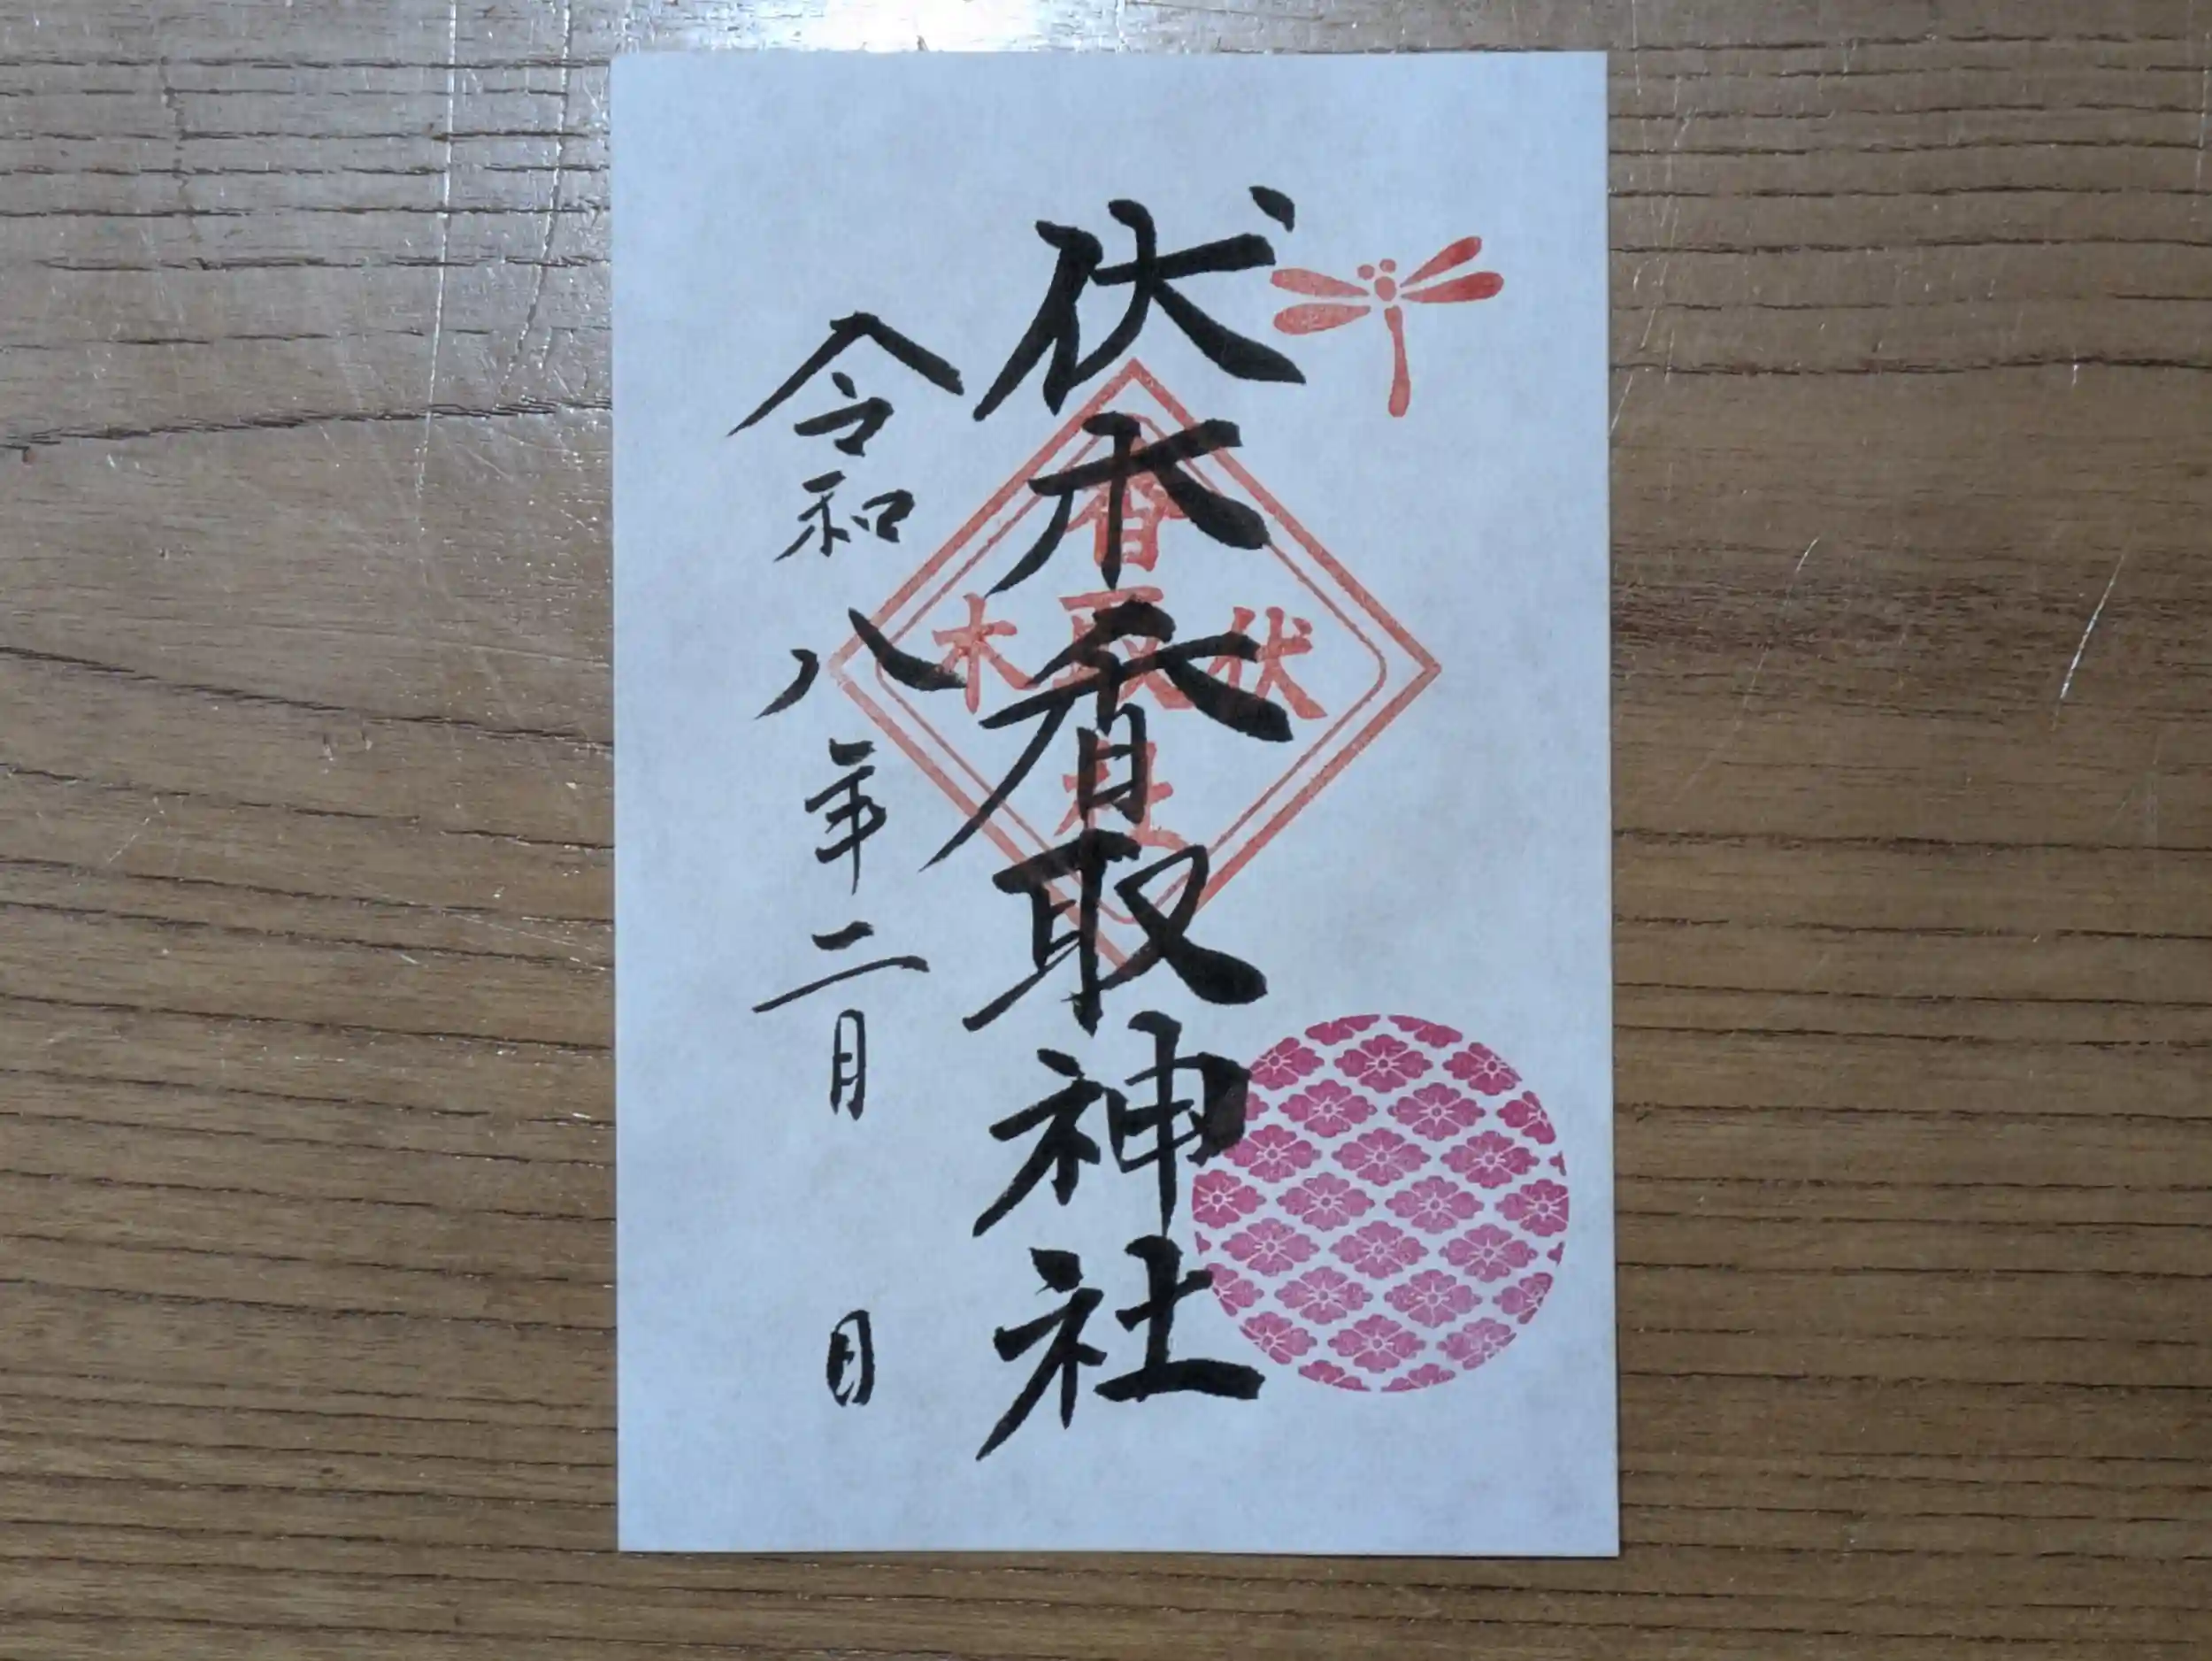 伏木香取神社
令和八年二月 日
香
木取伏
社